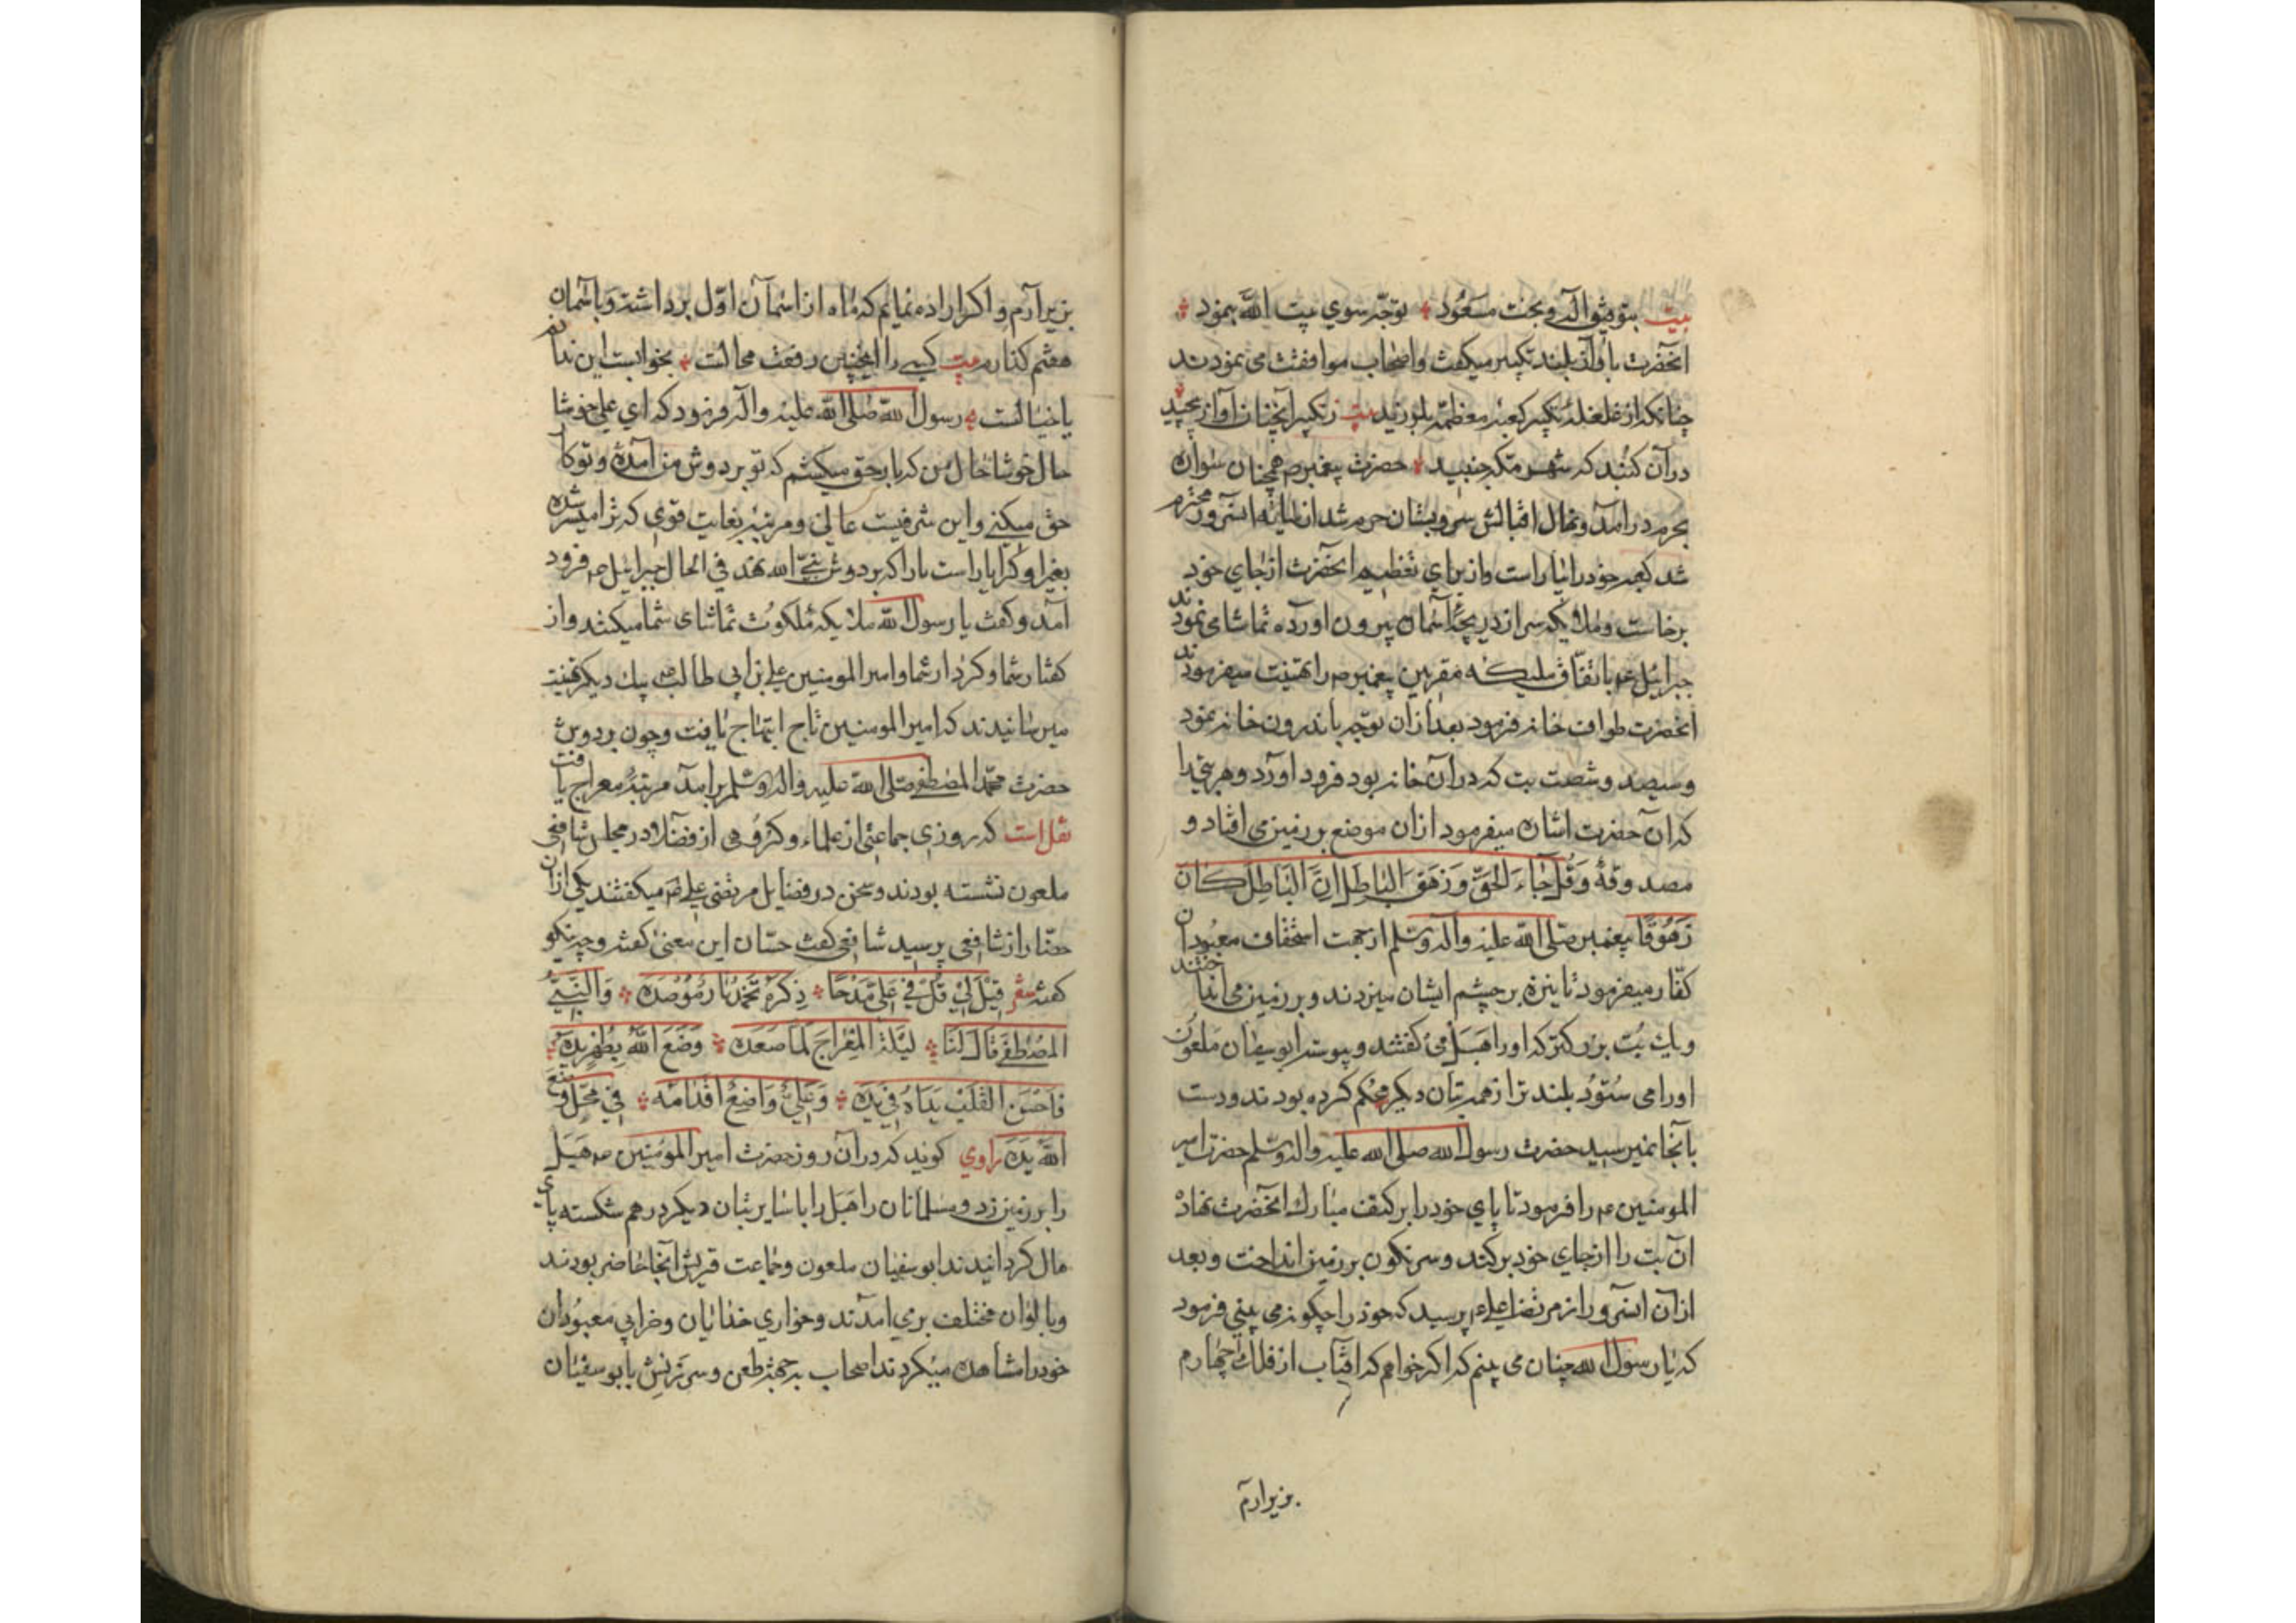 بیت بتوفیق اله و بخت مسعود توجه سوی بیت الله بنمود
انحضرت باواز بلند تکبیر میکفت واصحاب موافقت می نمودند
چنانکه از غلغله تکبیر کعبه معظمه بلرزید بیت ز تکبیر آنچنان آواز پیچید
در آن کنبد که شهر مکه جنبید حضرت پیغمبر ص همچنان سواره
بحرم درامد و نهال اقبالش سرو بستان حرم شد از سایه انسرور محترم
شد کعبه خود را بیاراست واز برای تعظیم انحضرت از جای خود
برخاست و ملایکه سر از دریچه آسمان بیرون اورده تماشا می نمودند
جبرائیل ع باتفاق ملیکه مقربین پیغمبر ص را تهنیت میفرمودند
انحضرت طواف خانه فرمود بعد ازان توجه باندرون خانه نمود
وسیصد و شصت بت که در آن خانه بود فرود اورد و هر بتی را
که ان حضرت اشاره میفرمود ازان موضع بر زمین می افتاد و
مصدوقه وَقُل جَاءَ الحَقُّ وَزَهَقَ البَاطِلُ اِنَّ البَاطِلَ کَانَ
زَهُوقًا پیغمبر صلی الله علیه واله وسلم از جهت استخفاف معبودان
کفار میفرمود تا نیزه بر چشم ایشان میزدند و بر زمین می انداختند
ویک بت بزرکتر که اورا هبل می کفتند وپیوسته ابوسفیان ملعون
اورا می ستود بلند تر از همه بتان دیکر محکم کرده بودند ودست
بآنجا نمیرسید حضرت رسول الله صلی الله علیه واله وسلم حضرت امیر
المومنین ع را فرمود تا پای خود را بر کتف مبارک انحضرت نهاده
ان بت را از جای خود برکند و سرنکون بر زمین انداخت وبعد
ازان انسرور از مرتضا علی ع پرسید که خود را چکونه می بینی فرمود
که یا رسول الله چنان می بینم که اکر خواهم که افتاب از فلک چهارم
بزیر ارم
بزیر آرم و اکر اراده نمایم که ماه از اسمان اول برداشته وباسمان
هفتم کذارم بیت کسی را اینچنین رفعت محالست بخوابست این ندانم
یا خیالست رسول الله صلی الله علیه واله فرمود که ای علی خوشا
حال خوشا حال من که بار حق میکشم که تو بر دوش من آمدۀ و تو کار
حق میکنی واین شرفیست عالی ومرتبه بغایت قوی که ترا میسر شده
بغیر او کرا یاراست پا را که بر دوش نبی الله نهد فی الحال جبرائیل ع فرود
آمد وکفت یا رسول الله ملایکه ملکوت تماشای شما میکنند واز
کفتار شما و کردار شما وامیر المومنین علی بن ابی طالب ع بیک دیکر تهنیت
میرسانیدند که امیر المومنین تاج ابتهاج یافت وچون بر دوش
حضرت محمد المصطفی صلی الله علیه واله وسلم برامد مرتبه معراج یافت
نقل است که روزی جماعتی از علماء وکروهی از فضلا در مجلس شافعی
ملعون نشسته بودند وسخن در فضایل مرتضی علی ع میکفتند یکی ازان
حضار از شافعی پرسید شافعی کفت حسان این معنی کفته وچه نیکو
کفته شعر قِیلَ لِی قُل فِی عَلِیٍّ مَدحًا ذِکرُهُ تُخمِدُ نَارًا مُؤصَدَه وَالنَّبِیُّ
المُصطَفَی قَالَ لَنَا لَیلَةَ المِعرَاجِ لَمَّا صَعِدَه وَضَعَ اللهُ بِظَهرِی یَدَهُ
فَاَحَسَّ القَلبُ وَعَلِیٌّ وَاضِعٌ اَقدَامَه فِی مَحَلٍّ وَضَعَ
اللهُ یَدَه راوی کوید که در آن روز حضرت امیر المؤمنین ع هبل
را بر زمین زد ومسلمانان راهبل را با سایر بتان دیکر درهم شکسته پای
مال کردانیدند ابوسفیان ملعون وجماعت قریش آنجا حاضر بودند
وبالوان مختلف برمی امدند وخواری خدائیان وخرابی معبودان
خود را مشاهده میکردند اصحاب طعن وسرزنش بابوسفیان